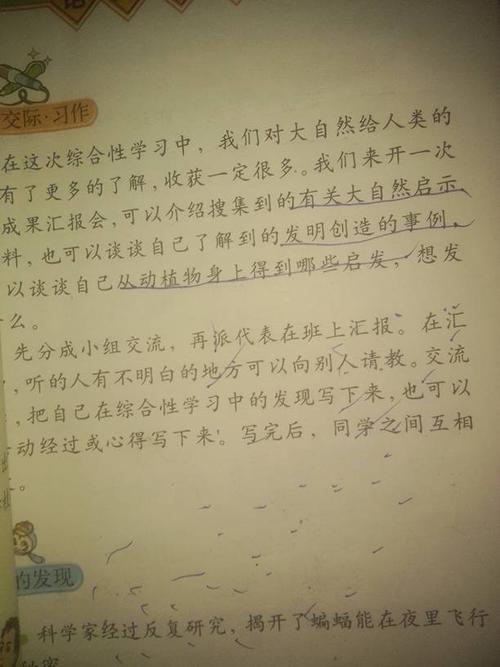 语
交际·习作
在这次综合性学习中，我们对大自然给人类的
有了更多的了解，收获一定很多。我们来开一次
成果汇报会，可以介绍搜集到的有关大自然启示
料，也可以谈谈自己了解到的发明创造的事例，
以谈谈自己从动植物身上得到哪些启发，想发
么。
先分成小组交流，再派代表在班上汇报。在汇
，听的人有不明白的地方可以向别人请教。交流
，把自己在综合性学习中的发现写下来，也可以
动经过或心得写下来。写完后，同学之间互相
。
的发现
科学家经过反复研究，揭开了蝙蝠能在夜里飞行